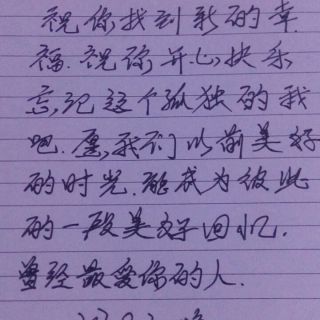 祝你找到新的幸
福.祝你开心,快乐
忘记这个孤独的我
吧.愿,我们以前美好
的时光.能成为彼此
的一段美好回忆.
曾经最爱你的人.